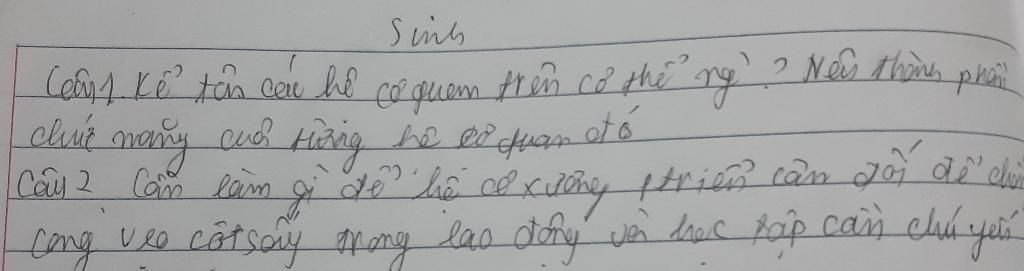 Sinh
Câu 1. Kể tên các hệ cơ quan trên cơ thể ng`? Nêu thành phần
chức năng của từng hệ cơ quan đó
Câu 2 Cần làm gì để hệ cơ xương ptriển cân đối để chốn
cong vẹo cột sống trong lao động và học tập cần chú ý